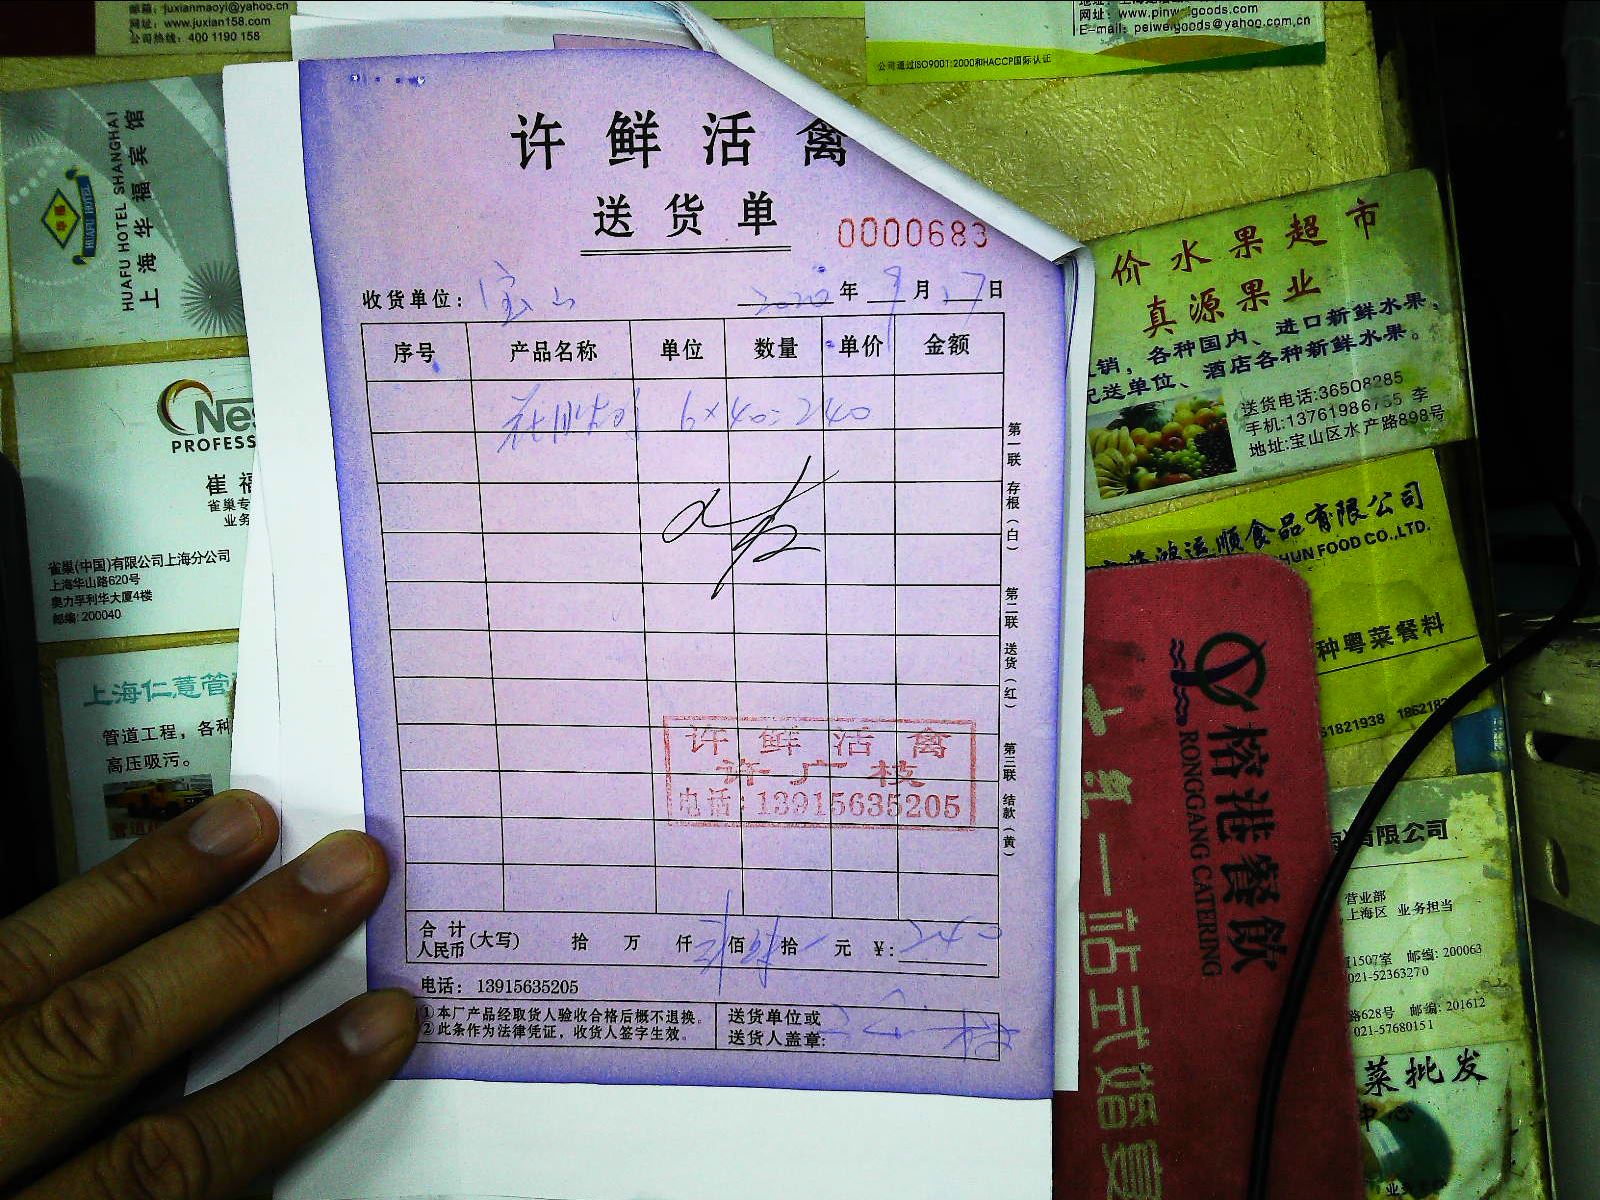 邮箱：juxianmaoyi@yahoo.cn
网址：www.juxian158.com
公司热线：400 1190 158
网址：www.pinweigoods.com
E-mail：peiweigoods@yahoo.com.cn
公司通过ISO9001:2000和HACCP国际认证
HUAFU HOTEL SHANGHAI
上海华福宾馆
HUAFU HOTEL
Nes
PROFESS
崔福
雀巢专
业务
雀巢(中国)有限公司上海分公司
上海华山路620号
奥力孚利华大厦4楼
邮编：200040
上海仁薏管
管道工程，各种
高压吸污。
许鲜活禽
送货单
0000683
收货单位：宝山 2020年9月27日
序号 产品名称 单位 数量 单价 金额
6×40=240
第一联 存根(白)
第二联 送货(红)
第三联 结款(黄)
许鲜活禽
许广枝
电话：13915635205
合计
人民币(大写) 拾 万 仟 佰 拾 元 ¥：240
电话：13915635205
①本厂产品经取货人验收合格后概不退换。
②此条作为法律凭证，收货人签字生效。
送货单位或
送货人盖章：
价水果超市
真源果业
销，各种国内、进口新鲜水果，
配送单位、酒店各种新鲜水果。
送货电话:36508285
手机:13761986755 李
地址:宝山区水产路898号
鸿运顺食品有限公司
HUN FOOD CO.,LTD.
种粤菜餐料
61821938
榕港餐飲
RONGGANG CATERING
一站式婚宴
有限公司
营业部
上海区 业务担当
1507室 邮编：200063
021-52363270
路628号 邮编：201612
021-57680151
菜批发
中心